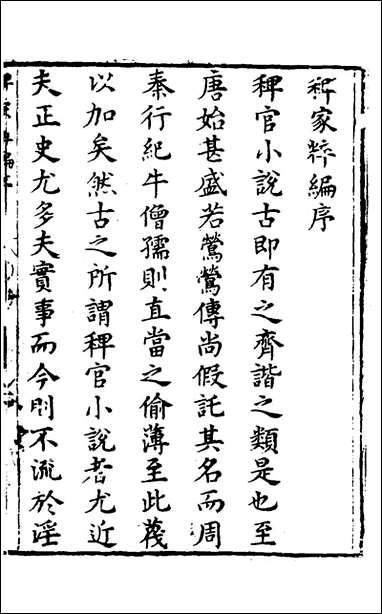 稗家粹編序
稗官小說古即有之齊諧之類是也至
唐始甚盛若鶯鶯傳尚假託其名而周
秦行紀牛僧孺則直當之偷薄至此蔑
以加矣然古之所謂稗官小說者尤近
夫正史尤多夫實事而今則不流於淫